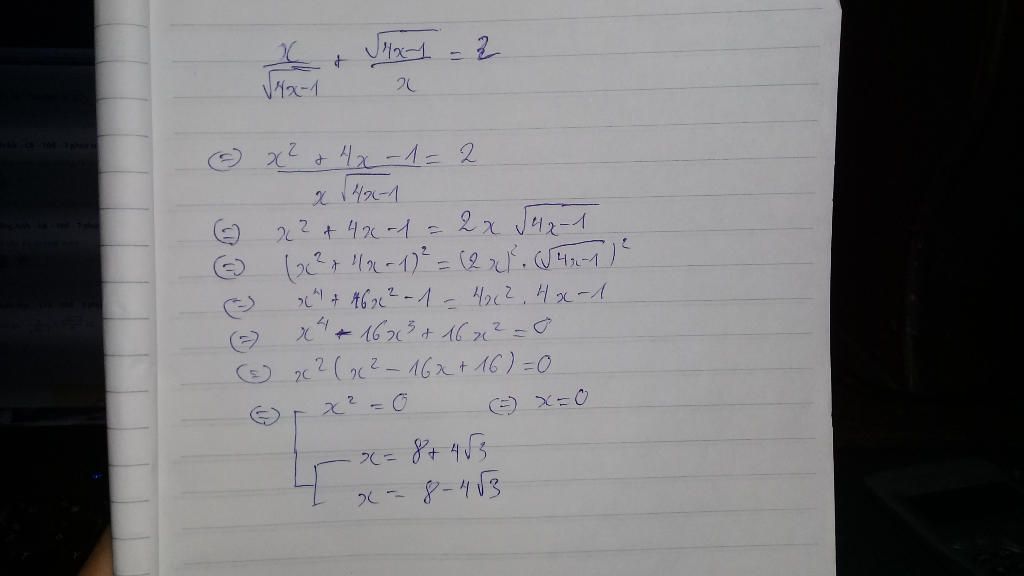 x/√(4x-1) + √(4x-1)/x = 2
(=) (x² + 4x - 1)/(x√(4x-1)) = 2
(=) x² + 4x - 1 = 2x √(4x-1)
(=) (x² + 4x - 1)² = (2x)² . (√(4x-1))²
(=) x⁴ + 16x² - 1 = 4x² . 4x - 1
(=) x⁴ - 16x³ + 16x² = 0
(=) x² (x² - 16x + 16) = 0
(=) [ x² = 0 (=) x = 0
[ x = 8 + 4√3
x = 8 - 4√3